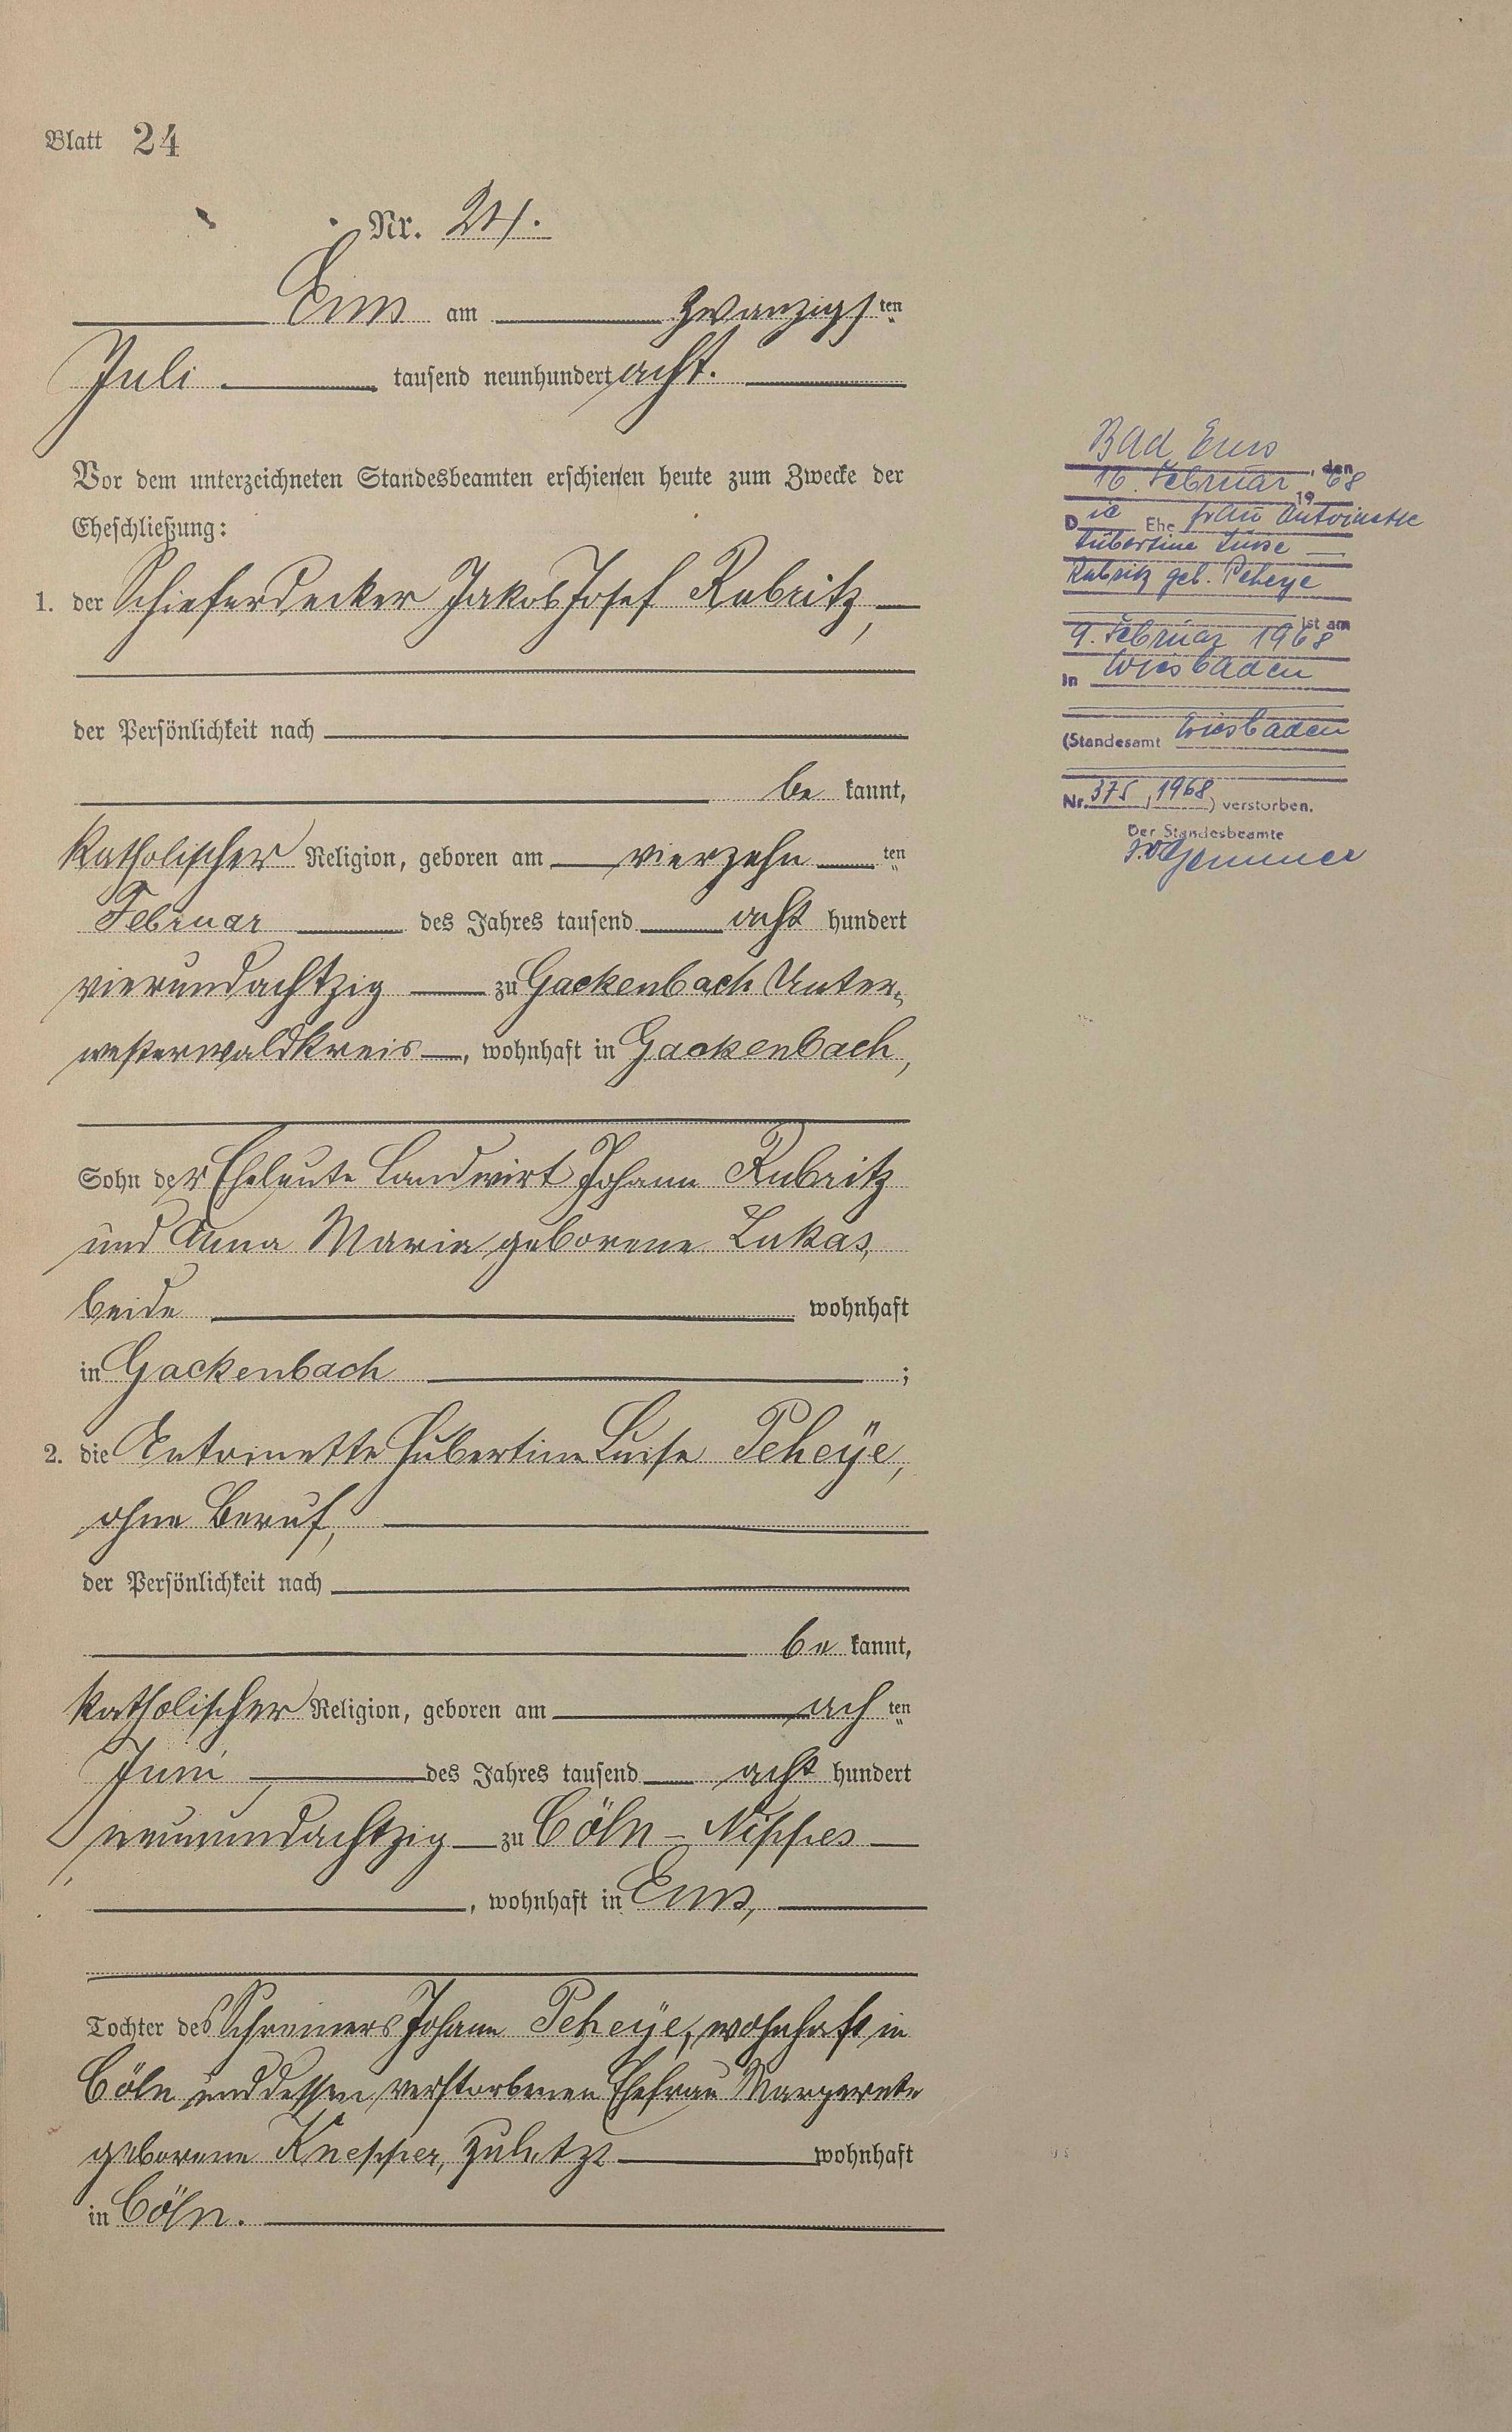 Blatt 24
Nr. 24.
Ems am zwanzigsten
Juli tausend neunhundert acht.
Vor dem unterzeichneten Standesbeamten erschienen heute zum Zwecke der
Eheschließung:
1. der Schieferdecker Jakob Josef Rubritz,
der Persönlichkeit nach
be kannt,
katholischer Religion, geboren am vierzehn ten
Februar des Jahres tausend acht hundert
vierundachtzig zu Gackenbach Unter-
westerwaldkreis, wohnhaft in Gackenbach,
Sohn der Eheleute Landwirt Johann Rubritz
und Anna Maria geborene Lukas,
beide wohnhaft
in Gackenbach ;
2. die Antoinette Hubertine Luise Peheÿe,
ohne Beruf,
der Persönlichkeit nach
be kannt,
katholischer Religion, geboren am ach ten
Juni des Jahres tausend acht hundert
neunundachtzig zu Cöln-Nippes
, wohnhaft in Ems,
Tochter des Schreiners Johann Peheÿe, wohnhaft in
Cöln und dessen verstorbenen Ehefrau Margarete
geborene Knepper, zuletzt wohnhaft
in Cöln.
Bad Ems, den
16. Februar 1968
Die Ehefrau Antoinette
Hubertine Luise
Rubritz geb. Peheye
ist am
9. Februar 1968
in Wiesbaden
(Standesamt Wiesbaden
Nr. 375/1968) verstorben.
Der Standesbeamte